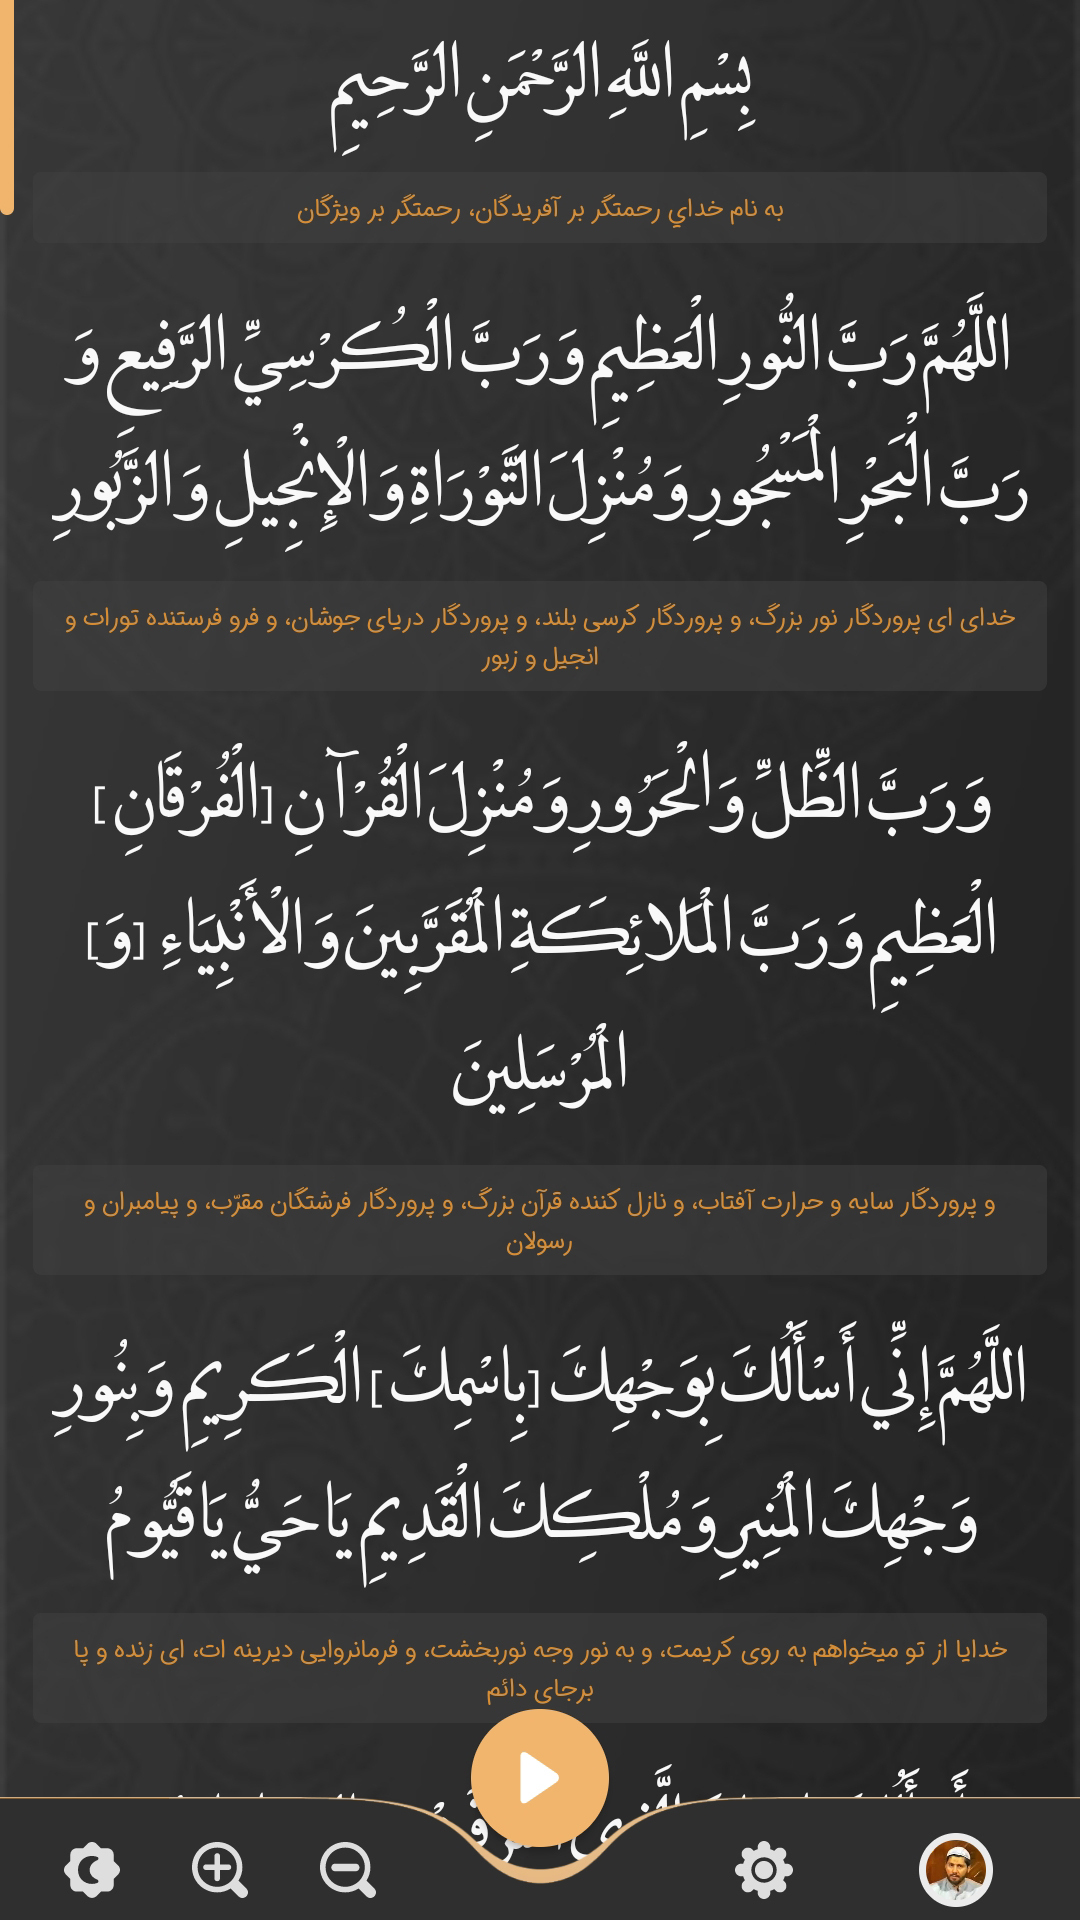 بِسْمِ اللَّهِ الرَّحْمَنِ الرَّحِيمِ
به نام خداي رحمتگر بر آفریدگان، رحمتگر بر ویژگان
اللَّهُمَّ رَبَّ النُّورِ الْعَظِيمِ وَ رَبَّ الْكُرْسِيِّ الرَّفِيعِ وَ
رَبَّ الْبَحْرِ الْمَسْجُورِ وَ مُنْزِلَ التَّوْرَاةِ وَ الْإِنْجِيلِ وَ الزَّبُورِ
خدای ای پروردگار نور بزرگ، و پروردگار کرسی بلند، و پروردگار دریای جوشان، و فرو فرستنده تورات و
انجیل و زبور
وَ رَبَّ الظِّلِّ وَ الْحَرُورِ وَ مُنْزِلَ الْقُرْآنِ [الْفُرْقَانِ]
الْعَظِيمِ وَ رَبَّ الْمَلائِكَةِ الْمُقَرَّبِينَ وَ الْأَنْبِيَاءِ [وَ]
الْمُرْسَلِينَ
و پروردگار سایه و حرارت آفتاب، و نازل کننده قرآن بزرگ، و پروردگار فرشتگان مقرّب، و پیامبران و
رسولان
اللَّهُمَّ إِنِّي أَسْأَلُكَ بِوَجْهِكَ [بِاسْمِكَ] الْكَرِيمِ وَ بِنُورِ
وَجْهِكَ الْمُنِيرِ وَ مُلْكِكَ الْقَدِيمِ يَا حَيُّ يَا قَيُّومُ
خدایا از تو میخواهم به روی کریمت، و به نور وجه نوربخشت، و فرمانروایی دیرینه ات، ای زنده و پا
برجای دائم